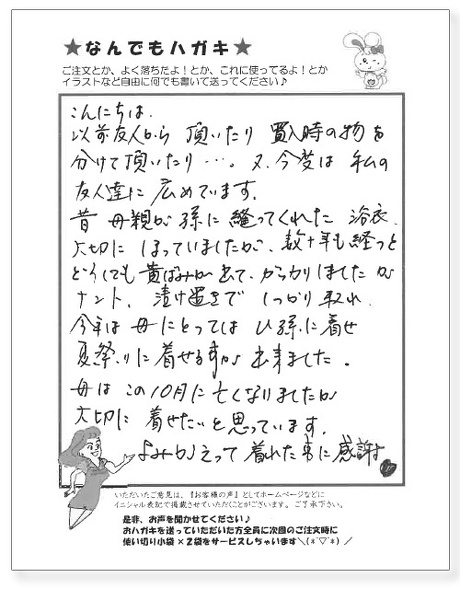 ★なんでもハガキ★
ご注文とか、よく落ちたよ！とか、これに使ってるよ！とか
イラストなど自由に何でも書いて送ってください♪
こんにちは。
以前友人から 頂いたり 購入時の物を
分けて頂いたり…。又、今度は 私の
友人達に 広めています。
昔 母親が 孫に 縫ってくれた 浴衣、
大切に しまっていましたが、数十年も経つと
どうしても 黄ばみが出て、がっかりしましたが
ナント、漬け置きで しっかり 取れ、
今年は 母にとっては ひ孫に着せ
夏祭りに着せる事が 出来ました。
母は この10月に 亡くなりましたが
大切に 着せたいと思っています。
よみがえって 着れた事に感謝♥
いただいたご意見は、『お客様の声』としてホームページなどに
イニシャル表記で掲載させていただくことがございます。ご了承下さい。
是非、お声を聞かせてください♪
おハガキを送っていただいた方全員に次回のご注文時に
使い切り小袋×2袋をサービスしちゃいます＼(*´▽`*)／